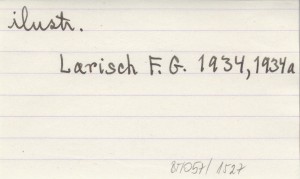 ilustr.
Larisch F. G. 1934, 1934a
87057/1527